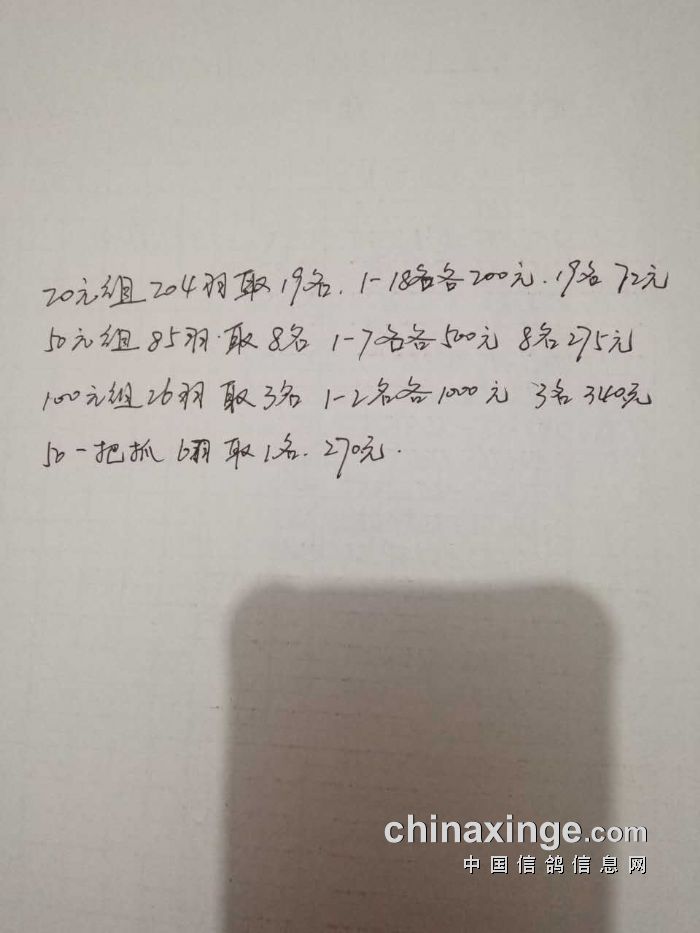 20元组204羽取19名.1-18名各200元.19名72元
50元组85羽.取8名 1-7名各500元 8名275元
100元组26羽 取3名 1-2名各1000元 3名340元
50一把抓 6羽取1名.270元.
chinaxinge.com
中国信鸽信息网